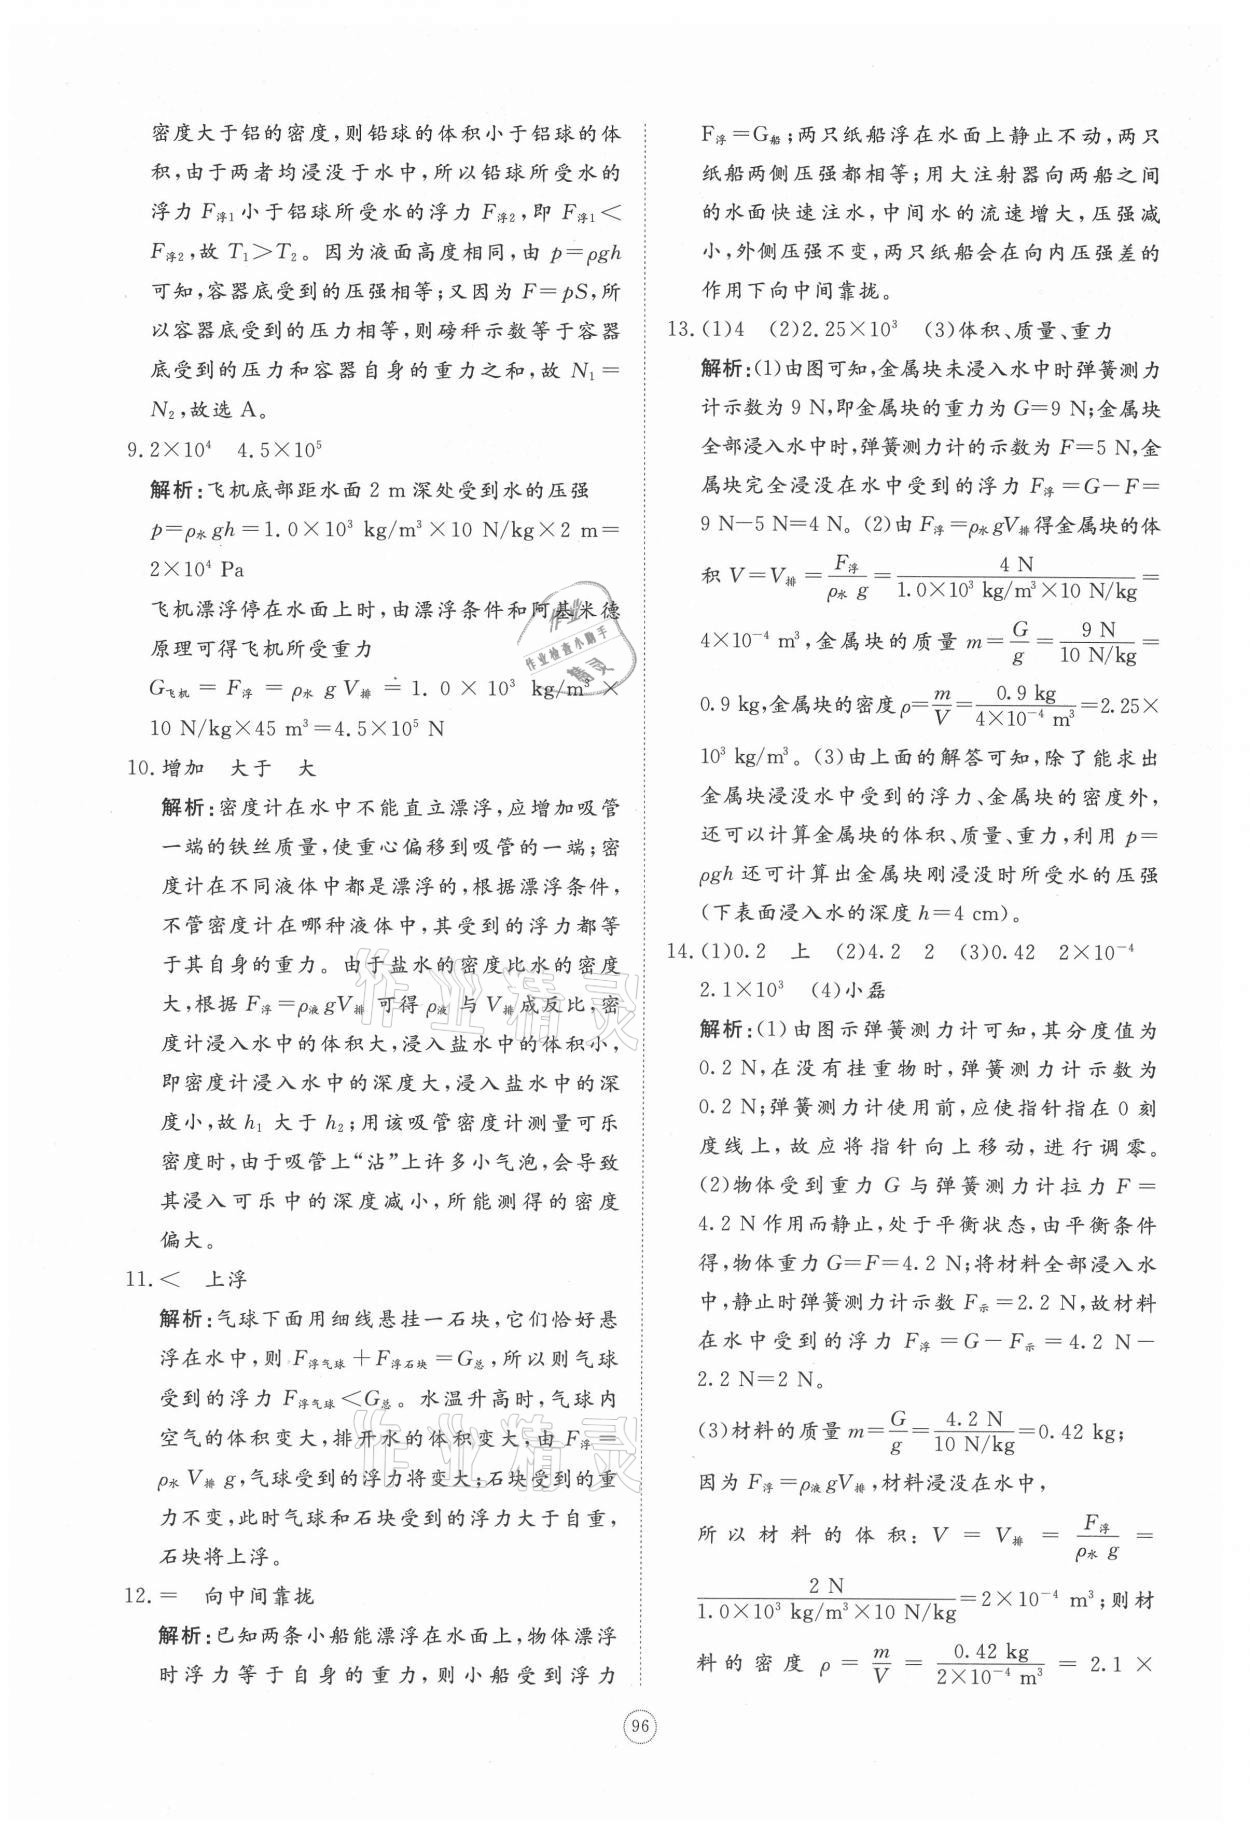 密度大于铝的密度，则铅球的体积小于铝球的体
积，由于两者均浸没于水中，所以铅球所受水的
浮力 F浮1小于铝球所受水的浮力 F浮2，即 F浮1＜
F浮2，故 T₁＞T₂。因为液面高度相同，由 p＝ρgh
可知，容器底受到的压强相等；又因为 F＝pS，所
以容器底受到的压力相等，则磅秤示数等于容器
底受到的压力和容器自身的重力之和，故 N₁＝
N₂，故选 A。
9.2×10⁴　4.5×10⁵
解析：飞机底部距水面 2 m深处受到水的压强
p＝ρ水gh＝1.0×10³ kg/m³×10 N/kg×2 m＝
2×10⁴ Pa
飞机漂浮停在水面上时，由漂浮条件和阿基米德
原理可得飞机所受重力
G飞机＝F浮＝ρ水gV排＝1.0×10³ kg/m³×
10 N/kg×45 m³＝4.5×10⁵ N
10.增加　大于　大
解析：密度计在水中不能直立漂浮，应增加吸管
一端的铁丝质量，使重心偏移到吸管的一端；密
度计在不同液体中都是漂浮的，根据漂浮条件，
不管密度计在哪种液体中，其受到的浮力都等
于其自身的重力。由于盐水的密度比水的密度
大，根据 F浮＝ρ液gV排 可得 ρ液 与 V排成反比，密
度计浸入水中的体积大，浸入盐水中的体积小，
即密度计浸入水中的深度大，浸入盐水中的深
度小，故 h₁ 大于 h₂；用该吸管密度计测量可乐
密度时，由于吸管上“沾”上许多小气泡，会导致
其浸入可乐中的深度减小，所能测得的密度
偏大。
11.＜　上浮
解析：气球下面用细线悬挂一石块，它们恰好悬
浮在水中，则 F浮气球＋F浮石块＝G总，所以则气球
受到的浮力 F浮气球＜G总。水温升高时，气球内
空气的体积变大，排开水的体积变大，由 F浮＝
ρ水V排g，气球受到的浮力将变大；石块受到的重
力不变，此时气球和石块受到的浮力大于自重，
石块将上浮。
12.＝　向中间靠拢
解析：已知两条小船能漂浮在水面上，物体漂浮
时浮力等于自身的重力，则小船受到浮力
F浮＝G船；两只纸船浮在水面上静止不动，两只
纸船两侧压强都相等；用大注射器向两船之间
的水面快速注水，中间水的流速增大，压强减
小，外侧压强不变，两只纸船会在向内压强差的
作用下向中间靠拢。
13.(1)4　(2)2.25×10³　(3)体积、质量、重力
解析：(1)由图可知，金属块未浸入水中时弹簧测力
计示数为 9 N，即金属块的重力为 G＝9 N；金属块
全部浸入水中时，弹簧测力计的示数为 F＝5 N，金
属块完全浸没在水中受到的浮力 F浮＝G－F＝
9 N－5 N＝4 N。(2)由 F浮＝ρ水gV排得金属块的体
积 V＝V排＝F浮/(ρ水g)＝4 N/(1.0×10³ kg/m³×10 N/kg)＝
4×10⁻⁴ m³，金属块的质量 m＝G/g＝9 N/(10 N/kg)＝
0.9 kg，金属块的密度ρ＝m/V＝0.9 kg/(4×10⁻⁴ m³)＝2.25×
10³ kg/m³。(3)由上面的解答可知，除了能求出
金属块浸没水中受到的浮力、金属块的密度外，
还可以计算金属块的体积、质量、重力，利用 p＝
ρgh 还可计算出金属块刚浸没时所受水的压强
(下表面浸入水的深度 h＝4 cm)。
14.(1)0.2　上　(2)4.2　2　(3)0.42　2×10⁻⁴
2.1×10³　(4)小磊
解析：(1)由图示弹簧测力计可知，其分度值为
0.2 N，在没有挂重物时，弹簧测力计示数为
0.2 N；弹簧测力计使用前，应使指针指在 0 刻
度线上，故应将指针向上移动，进行调零。
(2)物体受到重力 G 与弹簧测力计拉力 F＝
4.2 N作用而静止，处于平衡状态，由平衡条件
得，物体重力 G＝F＝4.2 N；将材料全部浸入水
中，静止时弹簧测力计示数 F示＝2.2 N，故材料
在水中受到的浮力 F浮＝G－F示＝4.2 N－
2.2 N＝2 N。
(3)材料的质量 m＝G/g＝4.2 N/(10 N/kg)＝0.42 kg；
因为 F浮＝ρ液gV排，材料浸没在水中，
所以材料的体积：V＝V排＝F浮/(ρ水g)＝
2 N/(1.0×10³ kg/m³×10 N/kg)＝2×10⁻⁴ m³；则材
料的密度 ρ＝m/V＝0.42 kg/(2×10⁻⁴ m³)＝2.1×
96
作业
作业检查小助手
精灵
作业精灵
作业精灵